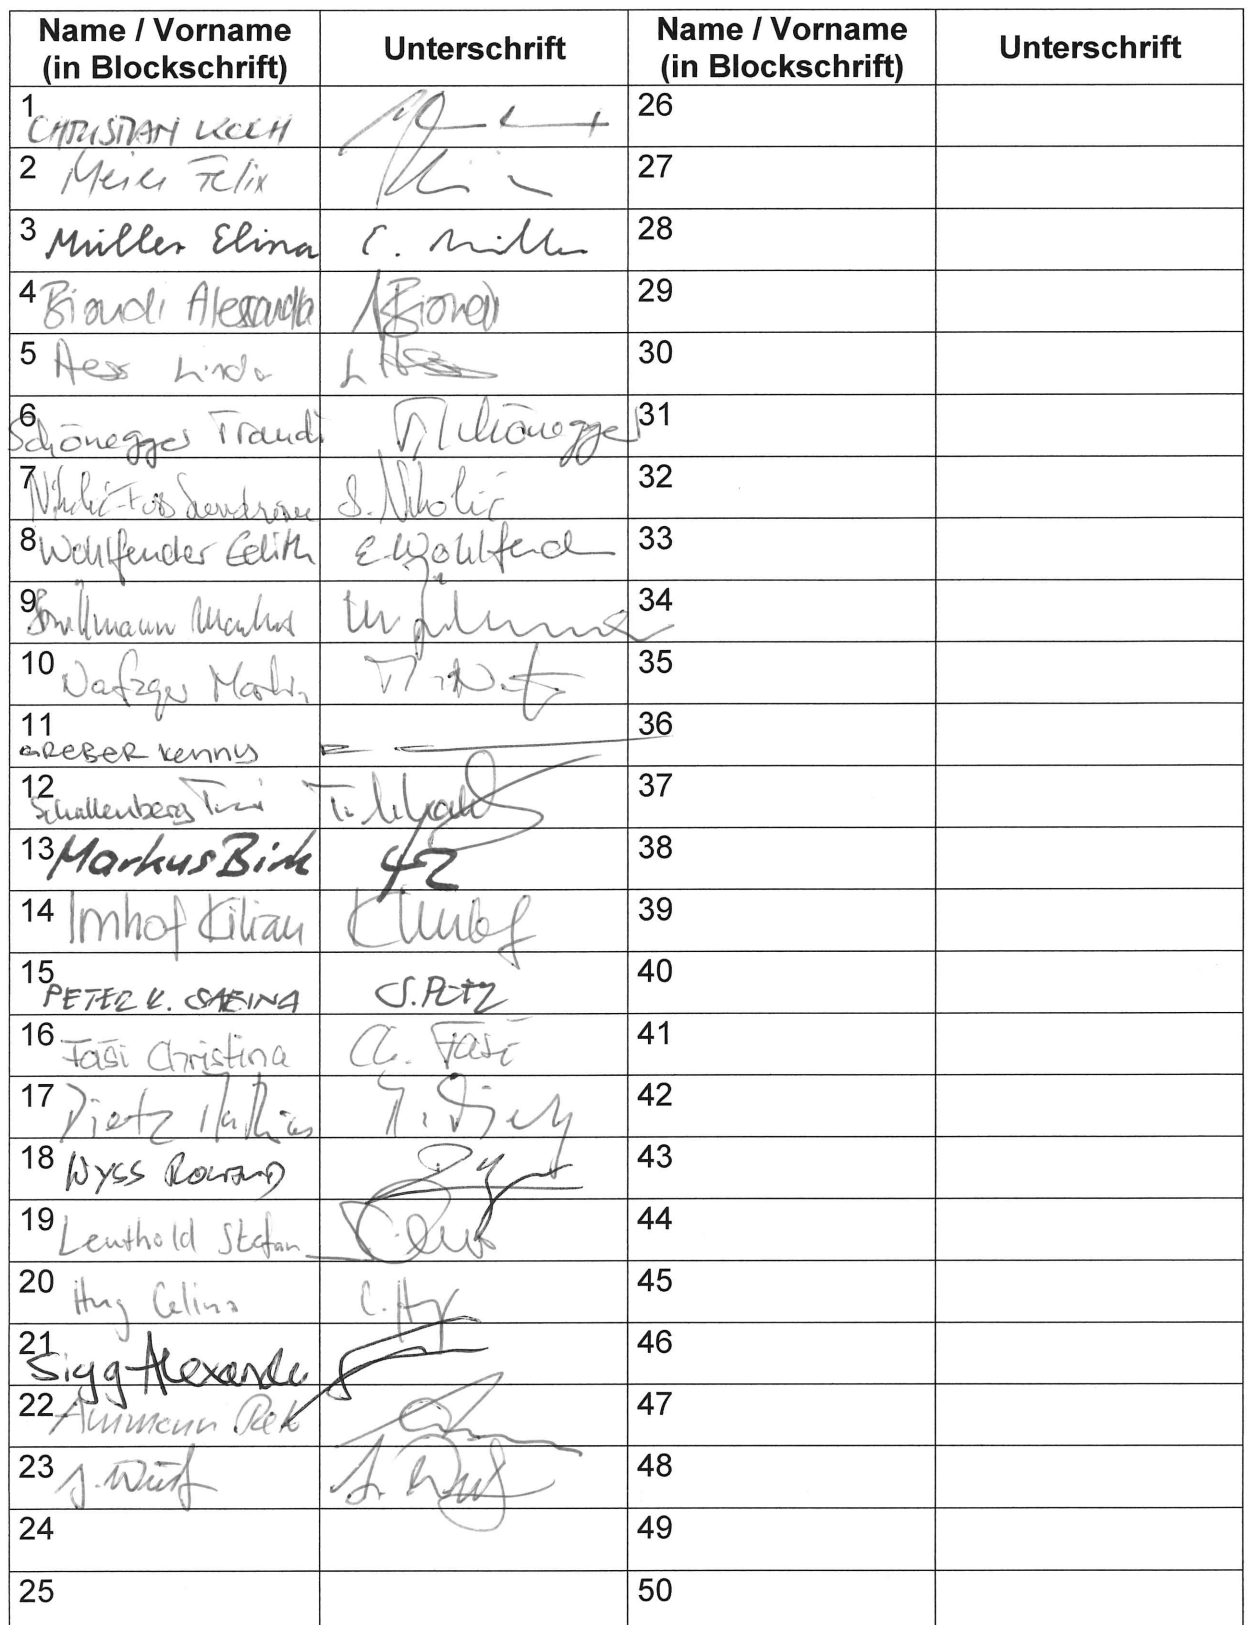 Name / Vorname
(in Blockschrift)
Unterschrift
Name / Vorname
(in Blockschrift)
Unterschrift
1 CHRISTIAN KOCH
26
2 Meier Felix
27
3 Müller Elina
E. Müller
28
4 Biondi Alessandra
A Biondi
29
5 Hess Linda
L Hess
30
6 Schönegger Traudi
T Schönegger
31
7 Nikolić
S. Nikolić
32
8 Wohlfender Edith
E. Wohlfend
33
9 Markus
34
10 Nafzger Martin
35
11 GREBER Kenny
36
12 Schallenberg Timi
37
13 Markus Birk
38
14 Imhof Kilian
K Imhof
39
15 PETER K. SABINA
40
16 Fäsi Christina
Ch. Fäsi
41
17 Dietz Mathias
M. Dietz
42
18 WYSS ROLAND
43
19 Leuthold Stefan
44
20 Hug Celina
C. Hug
45
21 Sigg Alexander
46
22 Ammann Reto
47
23
48
24
49
25
50